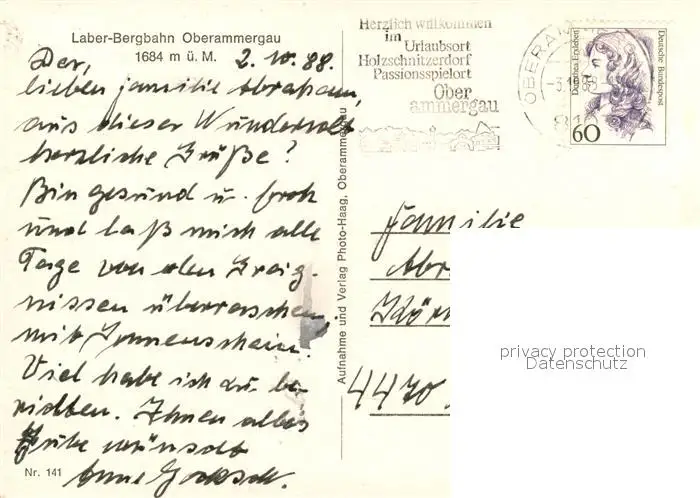 Laber-Bergbahn Oberammergau
1684 m ü. M.
2. 10. 88.
Der,
lieben Familie Abraham,
aus dieser Wundervolle
herzliche Grüße?
Bin gesund u. froh
und laß mich alle
Tage von den Ereig-
nissen überraschen,
mit Sonnenschein.
Viel habe ich zu be-
richten. Ihnen alles
Gute wünscht
Anne
Nr. 141
Aufnahme und Verlag Photo-Haag, Oberammergau
Herzlich willkommen
im
Urlaubsort
Holzschnitzerdorf
Passionsspielort
Ober
ammergau
OBERAM
Deutsche Bundespost
60
Familie
Abr
4470
privacy protection
Datenschutz